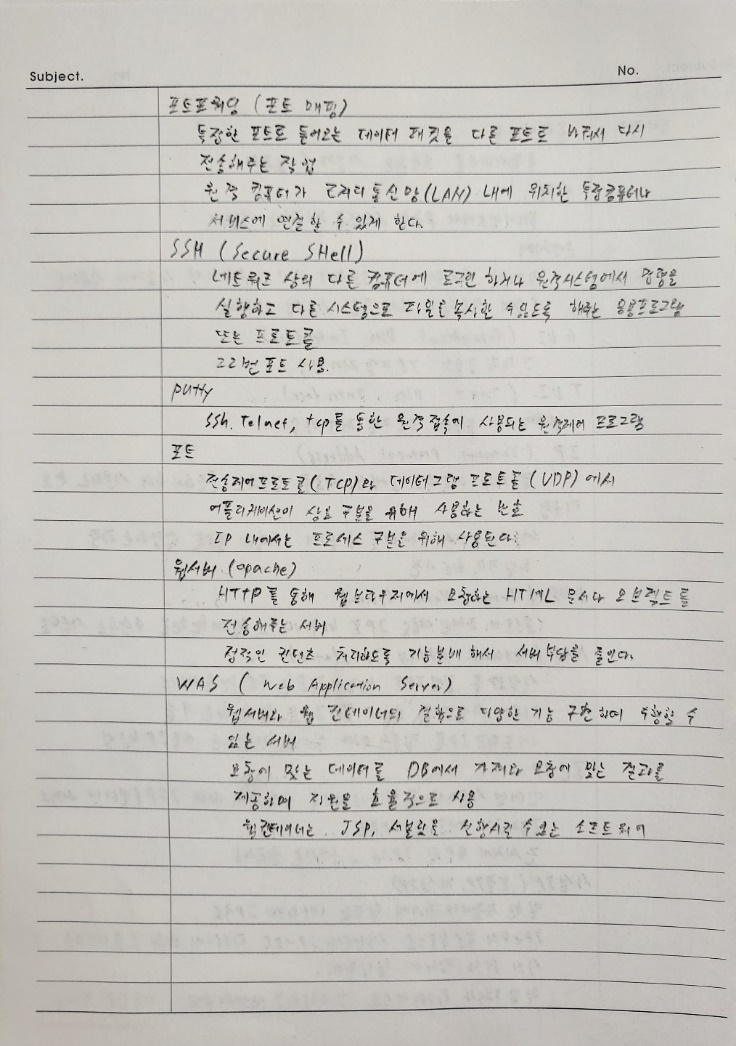 Subject.
No.
포트포워딩 (포트 매핑)
특정한 포트로 들어오는 데이터 패킷을 다른 포트로 바꿔서 다시
전송해주는 작업
원격 컴퓨터가 근거리통신망(LAN) 내에 위치한 특정컴퓨터나
서비스에 연결할 수 있게 한다.
SSH (Secure SHell)
네트워크 상의 다른 컴퓨터에 로그인 하거나 원격시스템에서 명령을
실행하고 다른 시스템으로 파일을 복사할 수 있도록 해주는 응용프로그램
또는 프로토콜
22번 포트 사용.
putty
SSh, Telnet, tcp를 통한 원격접속에 사용되는 원격제어 프로그램
포트
전송제어프로토콜(TCP)와 데이터그램 프로토콜(UDP)에서
어플리케이션이 상호 구분을 위해 사용하는 번호
IP 내에서는 프로세스 구분을 위해 사용된다.
웹서버 (apache)
HTTP를 통해 웹브라우저에서 요청하는 HTML 문서나 오브젝트를
전송해주는 서버
정적인 컨텐츠 처리하도록 기능분배 해서 서버부담을 줄인다.
WAS ( Web Application Server)
웹서버와 웹 컨테이너의 결합으로 다양한 기능 구현하여 수행할 수
있는 서버
요청에 맞는 데이터를 DB에서 가져와 요청에 맞는 결과를
제공하며 자원을 효율적으로 사용
웹컨테이너는 JSP, 서블릿을 실행시킬 수 있는 소프트웨어